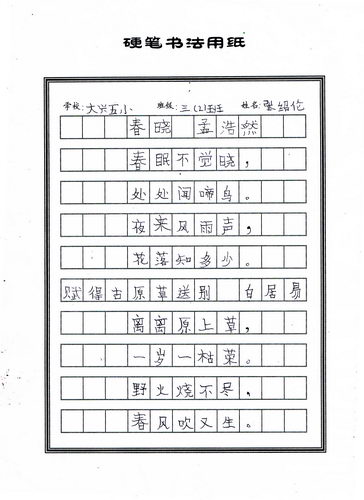 硬笔书法用纸
学校:大兴五小 班级:三(2)班 姓名:张绍伦
春晓 孟浩然
春眠不觉晓,
处处闻啼鸟。
夜来风雨声,
花落知多少。
赋得古原草送别 白居易
离离原上草,
一岁一枯荣。
野火烧不尽,
春风吹又生。